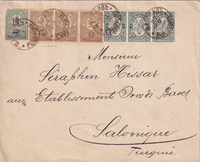 Monsieur
Séraphin Hissar
aux Etablissements Orosdi Back
Salonique
Turquie